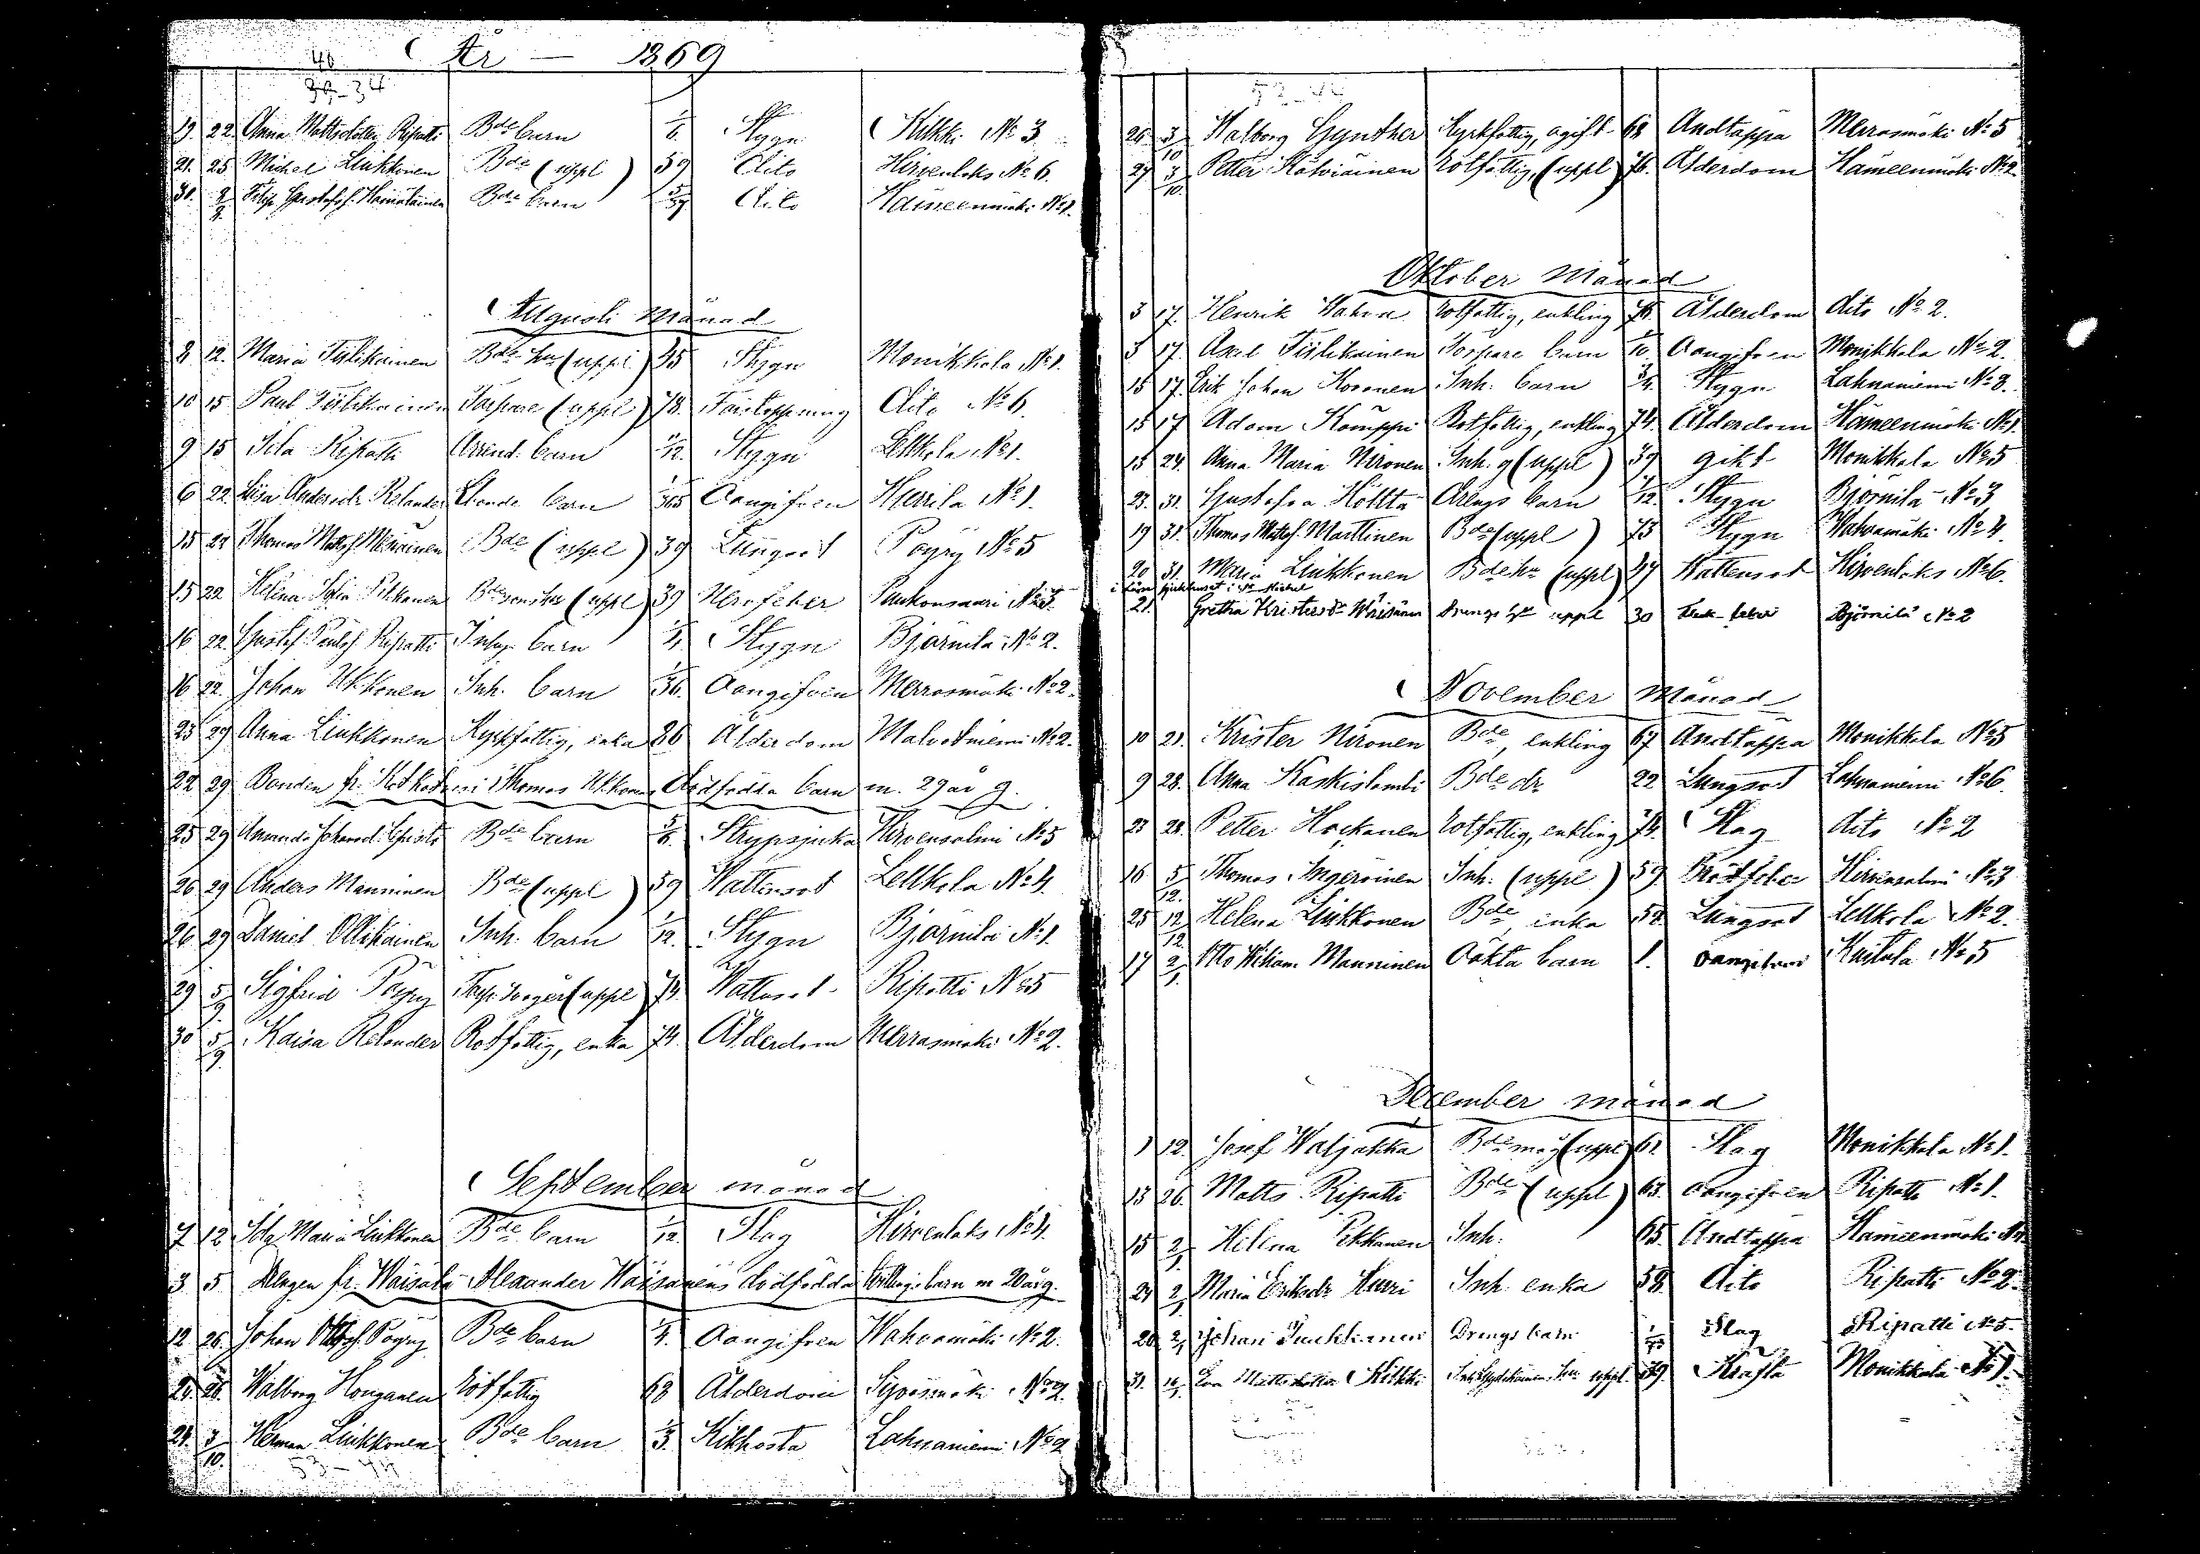 År — 1869
46
36-34
19. 22. Anna Mattsdotter Ripatti Bde barn 1/6. Stygn Kikki No 3.
21. 25 Michel Liukkonen Bde (uppl) 59 dito Hirvenlaks No 6.
31. Filip Gustafsf. Hämäläinen Bde barn dito Hämeenmäki No 1.
Augusti Månad
8 12. Maria Tislikainen Bde hu (uppl) 45 Stygn Monikkala No 1.
10 15 Paul Tislikainen Torpare (uppl) 78. Förstoppning dito No 6.
9 15 Ida Ripatti Arrend. barn 1/12. Stygn Lellkola No 1.
6 22. Lisa Andersdr Relander barn 1/365 Oangifven Hurrila No 1.
15 22 Thomas Mattsf. Bde (uppl) 39 Lungsot Pöyry No 5
15 22 Helena Sofia Pekkonen Bdesons hu (uppl) 39 Nerffeber Paukonsaari No 3.
16 22. Gustaf Paulsf. Ripatti Inhys. barn Stygn Björnilä No 2.
16 22. Johan Ukkonen Inh. barn 1/36. Oangifven Merrasmäki No 2.
25 29 Anna Liukkonen Kyrkfattig, enka 86 Ålderdom Malvoniemi No 2.
22 29 Bonden fr. Thomas Ukkonens dödfödda barn m. 29 år g.
25 29 Amanda Johansd. Bde barn 5/6. Strypsjuka Hirvensalmi No 5
26 29 Anders Manninen Bde (uppl) 59 Wattensot Lellkola No 4.
26 29 Daniel Ollikainen Inh. barn 1/12. Stygn Björnilä No 1.
29 5/9 Sigfrid Pöyry Torp. svåger (uppl) 74. Wattusot Ripatti No 5
30 5/9. Kaisa Relander Rotfattig, enka 74. Ålderdom Merrasmäki No 2.
September månad
7 12 Ida Maria Liukkonen Bde barn 1/12. Slag Hirvenlaks No 4.
3 5 Drengen fr. Waisala Alexander Waisanens dödfödda tvillingebarn m 20 år g.
12 26. Johan Pöyry Bde barn 1/4. Oangifven Wahvamäki No 2.
24. 26. Walborg Honganen Rotfattig 68 Ålderdom Syväsmäki No 2.
28. 3/10. Herman Liukkonen Bde barn Kikhosta Lahnaniemi No 2
53-44
26. 3/10 Walborg Gynther Kyrkfattig, ogift 68 Andtäppa Merrasmäki No 5
27 3/10. Petter Rotfattig, (uppl) 76. Ålderdom Hämeenmäki No 2.
Oktober Månad
3 17. Henrik Rotfattig, enkling 76. Ålderdom dito No 2.
5 17. Axel Tislikainen Torpare barn 1/10. Oangifven Monikkala No 2.
15 17. Erik Johan Kosonen Inh. barn 3/4. Stygn Lahnaniemi No 3.
15 17 Adam Kämppi Rotfattig, enkling 74. Ålderdom Hämeenmäki No 1.
15 24. Anna Maria Nironen Inh. g (uppl) 39 gikt Monikkala No 5
23. 31. Gustafva Hölttä Drengs barn 1/12. Stygn Björnilä No 3
19 31. Thomas Mattsf. Marttinen Bde (uppl) 73 Stygn Wahvamäki No 4.
20 31. Maria Liukkonen Bde hu (uppl) 47 Wattensot Hirvenlaks No 6.
21. Gretha Kristersdr Wäisänen Drengs hu uppl 30 Björnilä No 2
November Månad
10 21. Krister Nironen Bde, enkling 67 Andtäppa Monikkala No 5
9 28. Anna Kaskislambi Bde dr 22 Lungsot Lahnaniemi No 6.
23 28. Petter Hokkanen Rotfattig, enkling 74. Slag dito No 2
16 5/12. Thomas Ingeroinen Inh. (uppl) 59 Rötfeber Hirvensalmi No 3
25 12/12 Helena Liukkonen Bde enka 54. Lungsot Lellkola No 2.
17 2/1. Otto Wilhiam Manninen Oäkta barn 1. Oangifven Kuitula No 5
December månad
1 12. Josef Waljakka Bde måg (uppl) 62 Slag Monikkala No 1.
13 26. Matts Ripatti Bde (uppl) 63. Oangifven Ripatti No 1.
15 2/1 Helena Pekkanen Inh. 65. Andtäppa Hämeenmäki
24 2/1 Maria Eriksdr Hurri Inh. enka 58. dito Ripatti No 2.
28 2/1 Johan Drengs barn Slag Ripatti No 5.
31. Eva Mattsdotter Kikki hu uppl. 39. Kräfta Monikkala No 1.